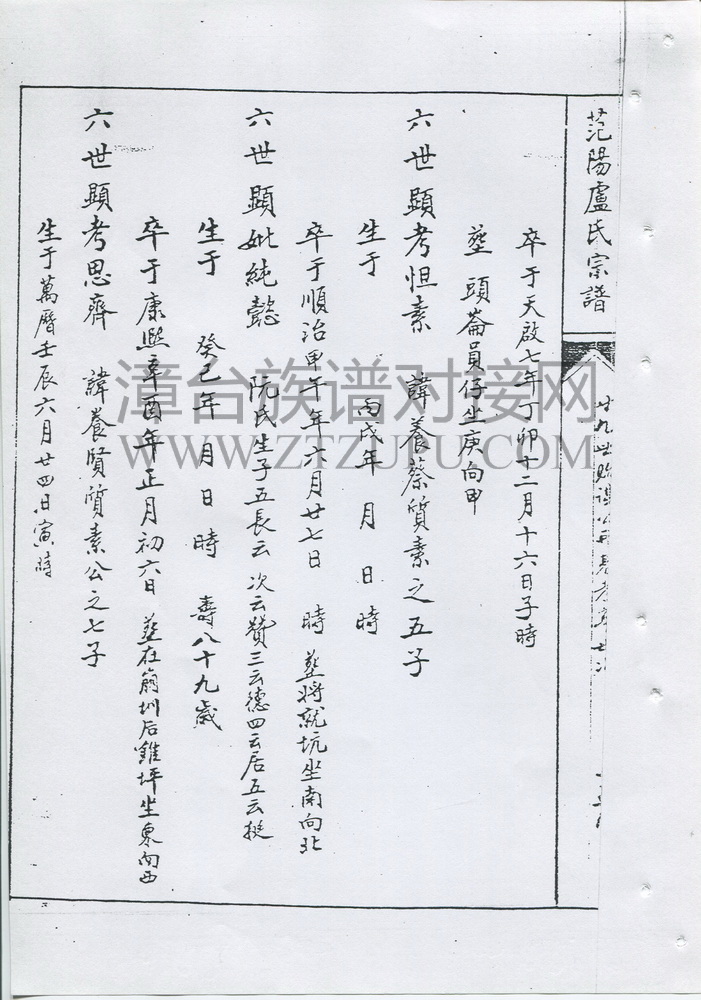 范陽盧氏宗譜
卒于天啟七年丁卯十二月十六日子時
塟頭崙員仔坐庚向甲
六世顯考怛素 諱養蔡質素之五子
生于 丙戌年 月 日 時
卒于順治甲午年六月廿七日 時 塟将就坑坐南向北
六世顯妣純懿 阮氏生子五長云 次云贊三云德四云居五云挺
生于 癸巳年 月 日 時 壽八十九歲
卒于康熙辛酉年正月初六日 塟在崩圳后雞坪坐東向西
六世顯考思齊 諱養賢質素公之七子
生于萬曆壬辰六月廿四日寅時
漳台族谱对接网
WWW.ZTZUPU.COM